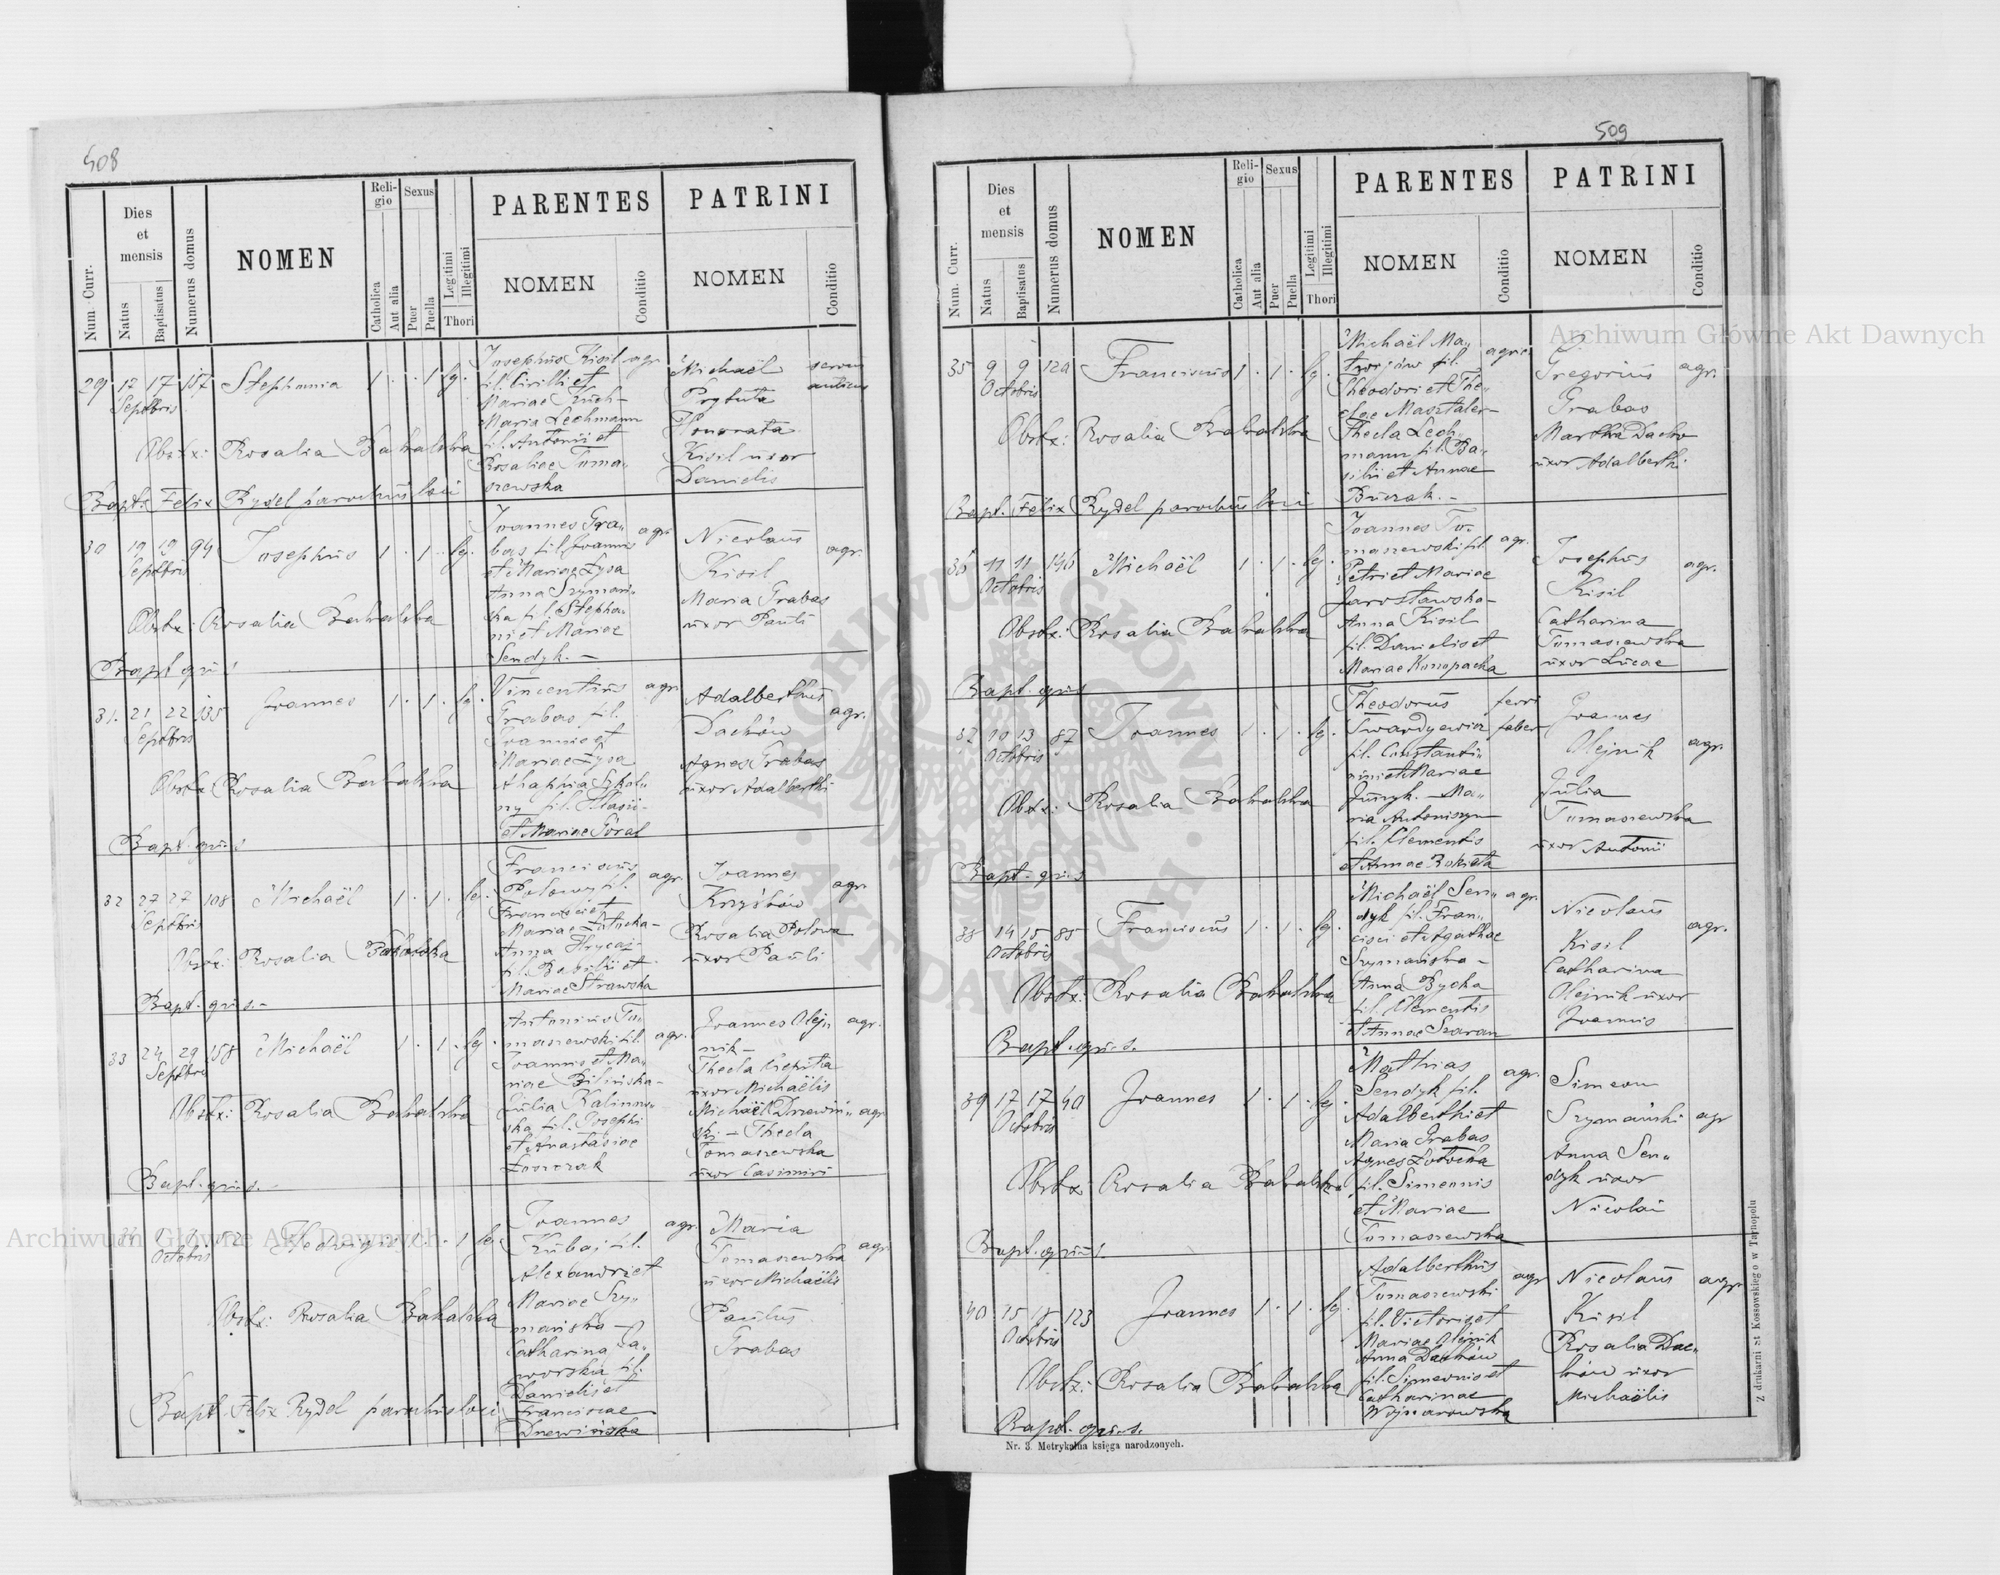 508
Num. Curr.
Dies et mensis
Natus
Baptisatus
Numerus domus
NOMEN
Religio
Catholica
Aut alia
Sexus
Puer
Puella
Legitimi
Illegitimi
Thori
PARENTES
NOMEN
Conditio
PATRINI
NOMEN
Conditio
29 17 17 157 Stephania 1 . . 1 lg.
Septbris
Josephus Kisil agr.
fil. Cirilli et
Mariae
Maria Lechmann
fil. Antonii et
Rosaliae Toma-
szewska
Michaël
Prytuła
Honorata
Kisil uxor
Danielis
Obstx: Rosalia Bakalska
Bapt: Felix Rydel parochus loci
30 19 19 94 Josephus 1 . 1 . lg.
Septbris
Joannes Gra- agr.
bas fil. Joannis
et Mariae Łysa
Anna Szymań-
ska fil. Stepha-
ni et Mariae
Sendyk. –
Nicolaus agr.
Kisil
Maria Grabas
uxor Pauli
Obstx: Rosalia Bakalska
Bapt. qui s.
31. 21 22 135 Joannes 1 . 1 . lg.
Septbris
Vincentius agr.
Grabas fil.
Joannis et
Mariae Łysa
Ahaphia
fil.
et Mariae Góral
Adalbertus agr.
Dachów
Agnes Grabas
uxor Adalberthi
Obstx: Rosalia Bakalska
Bapt. qui s.
32 27 27 108 Michaël 1 . 1 . lg.
Septbris
Franciscus agr.
Połowy fil.
Francisci et
Mariae
Anna Hrycaj-
fil. Basilii et
Mariae Strawska
Joannes agr.
Rosalia Połowa
uxor Pauli
Obstx: Rosalia Bakalska
Bapt. qui s. –
33 24 29 158 Michaël 1 . 1 . lg.
Septbris
Antonius To- agr.
maszewski fil.
Joannis et Ma-
riae Bilińska-
Julia Kalinow-
ska fil. Josephi
et Anastasiae
Joannes Olej- agr.
nik –
Thecla
uxor Michaëlis
Michaël Dzewiń- agr.
ski – Thecla
Tomaszewska
uxor Casimiri
Obstx: Rosalia Bakalska
Bapt. qui s. –
Octobris
Hedvigis
Joannes agr.
Kubaj fil.
Alexandri et
Mariae Szy-
mańska –
Catharina Ja-
worska fil.
Danielis et
Franciscae
Maria agr.
Tomaszewska
uxor Michaëlis
Paulus
Grabas
Obstx: Rosalia Bakalska
Bapt. Felix Rydel parochus loci
509
Num. Curr.
Dies et mensis
Natus
Baptisatus
Numerus domus
NOMEN
Religio
Catholica
Aut alia
Sexus
Puer
Puella
Legitimi
Illegitimi
Thori
PARENTES
NOMEN
Conditio
PATRINI
NOMEN
Conditio
35 9 9 129 Franciscus 1 . 1 . lg.
Octobris
Michaël Ma-
fil.
Theodori et The-
clae Masztaler-
Thecla Lech-
mann fil. Ba-
silii et Annae
Burzak. –
Gregorius agr.
Grabas
Martha Dachów
uxor Adalberthi
Obstx: Rosalia Bakalska
Bapt. Felix Rydel parochus loci
36 11 11 146 Michaël 1 . 1 . lg.
Octobris
Joannes To- agr.
maszewski fil.
Petri et Mariae
Jarosławska –
Anna Kisil
fil. Danielis et
Mariae Konopacka
Josephus agr.
Kisil
Catharina
Tomaszewska
uxor Lucae
Obstx: Rosalia Bakalska
Bapt. qui s.
37 10 13 87 Joannes 1 . 1 . lg.
Octobris
Theodorus ferri
Twardyewicz faber
fil. Constanti-
ni et Mariae
Ma-
ria Antoniszyn
fil. Clementis
et Annae Rokieta
Joannes agr.
Olejnik
Julia
Tomaszewska
uxor Antonii
Obstx: Rosalia Bakalska
Bapt. qui s.
38 14 15 85 Franciscus 1 . 1 . lg.
Octobris
Michaël Sen- agr.
dyk fil. Fran-
cisci et Agathae
Szymańska –
Anna Bycka
fil. Clementis
et Annae Szaran
Nicolaus agr.
Kisil
Catharina
Olejnik uxor
Joannis
Obstx: Rosalia Bakalska
Bapt. qui s.
39 17 17 40 Joannes 1 . 1 . lg.
Octobris
Mathias agr.
Sendyk fil.
Adalberthi et
Maria Grabas
Agnes
fil. Simeonis
et Mariae
Tomaszewska
Simeon
Szymański agr
Anna Sen-
dyk uxor
Nicolai
Obstx: Rosalia Bakalska
Bapt. qui s.
40 15 18 123 Joannes 1 . 1 . lg.
Octobris
Adalberthus agr
Tomaszewski
fil. Victoris et
Mariae Olejnik
Anna Dachów
fil. Simeonis et
Catharinae
Wojnarowska
Nicolaus agr.
Kisil
Rosalia Dac-
hów uxor
Michaëlis
Obstx: Rosalia Bakalska
Bapt. qui s.
Nr. 3. Metrykalna księga narodzonych.
Z drukarni St Kossowskiego w Tarnopolu
Archiwum Główne Akt Dawnych
Archiwum Główne Akt Dawnych
ARCHIWUM GŁÓWNE AKT DAWNYCH